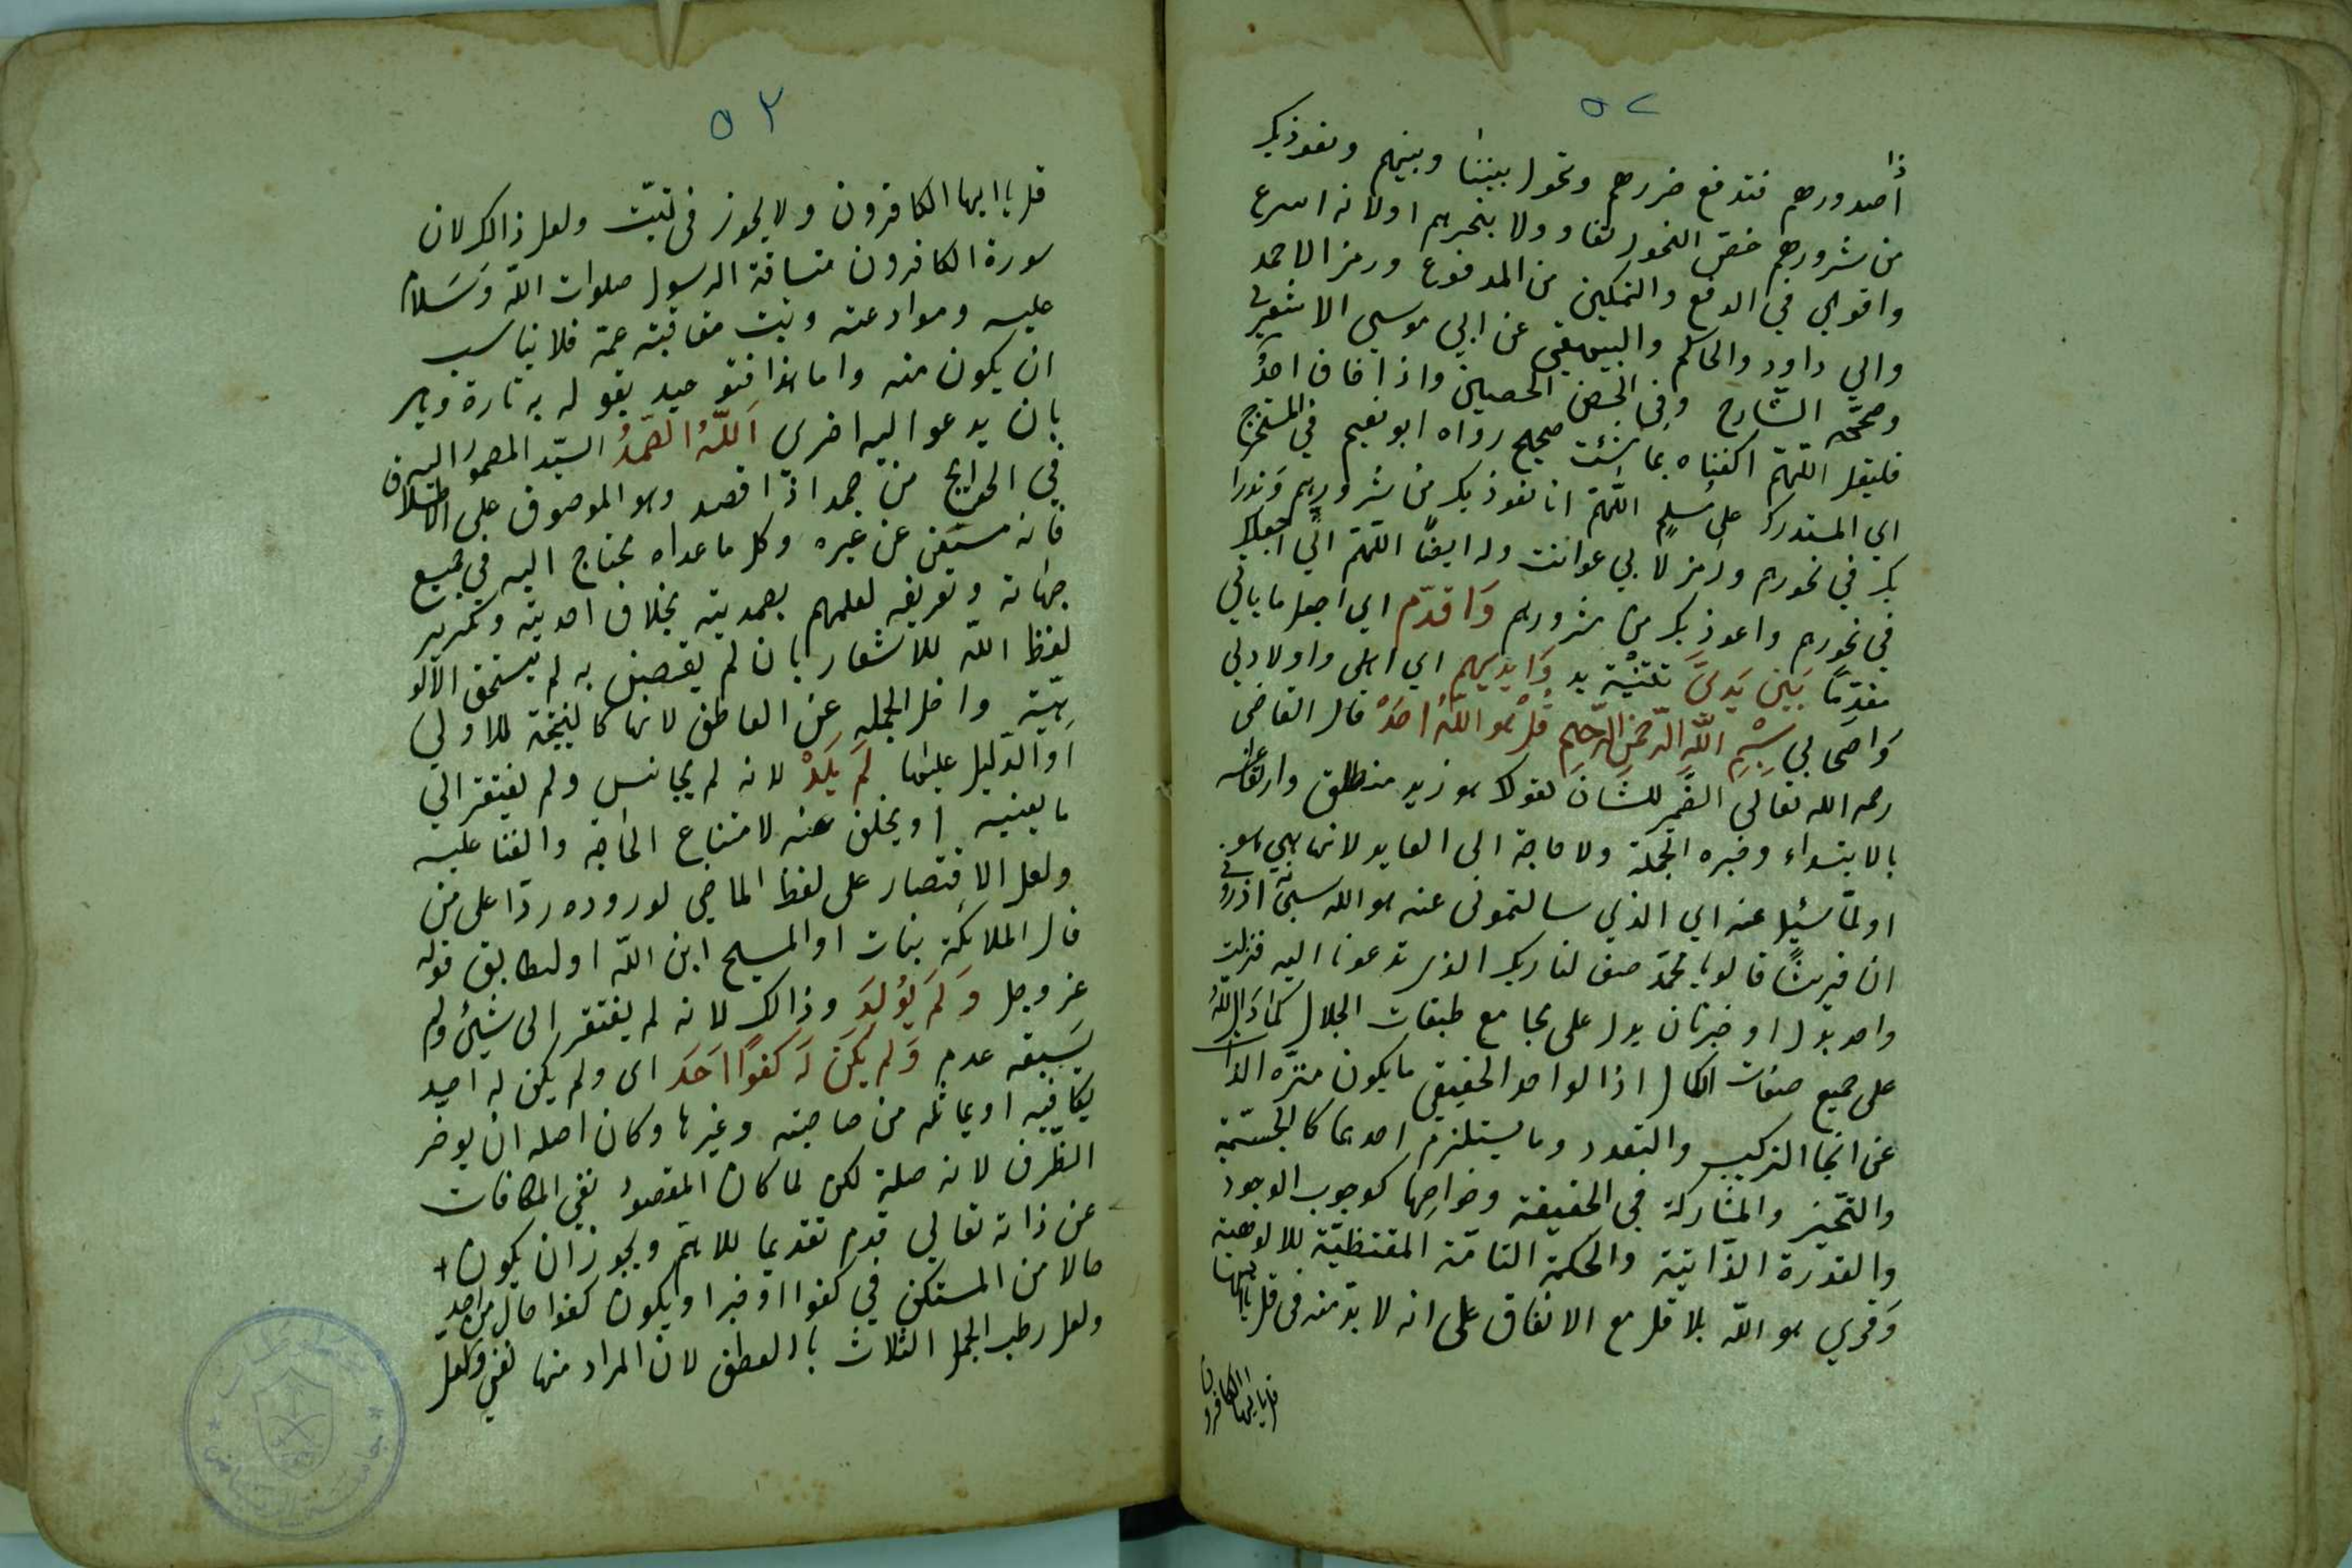 ٥٢
اصدورهم فتدفع ضررهم وتحول بيننا وبينهم ونعوذ بك
من شرورهم خص النحور تفاو ولا بنحرهم او لانه اسرع
واقوي في الدفع والتمكين من المدفوع ورمز الاحمد
وابي داود والحاكم والبيهقي عن ابي موسي الاشعري
وصححه الشارح وفي الحصن الحصين واذا خاف احدٌ
فليقل اللهمّ اكفناه بما شئت صحيح رواه ابو نعيم في المستخرج
اي المستدرك على مسلم اللهمّ انا نعوذ بك من شرورهم وندرا
بك في نحورهم ورمز لا بي عوانت وله ايضًا اللهمّ انّي اجعلك
في نحورهم واعوذ بك من شرورهم وَاقدّم اي اجعل ما ياتي
مقدمًا بَيْن يَديَّ تثنية يد وَايديهم اي اهلى واولادي
وَاصحابي بِسْمِ اللّهِ الرّحمنِ الرّحيمِ قُلْ هُو اللّهُ احَدٌ قال القاضى
رحمه الله تعالي الضّمير للشان كقولك هو زيد منطلق وارتفاعه
بالابتداء وخبره الجملة ولا حاجة الى العايد لانها هي هو
اولمّا سُئِل عنه اي الذي سالتموني عنه هو الله سبحانه اذروي
ان قريشًا قالو يا محمّد صف لنا ربك الذى تدعونا اليه فنزلت
واحد بدل او خبر ثان يدل على مجامع طبقات الجلال كما دَلّ اللّه
على جميع صفات الكمال اذا لواحد الحقيقي ما يكون منزّه الذات
عن انحا التركيب والتعدد وما يستلزم احدهما كالجسميّة
والتحيّز والمشاركة في الحقيقة وخواصها كوجوب الوجود
والقدرة الذّاتية والحكمة التامّة المقتظيّة للالوهية
وَقري هو اللّه بلا قل مع الاتفاق على انه لا بدّ منه فى قل ياايها
قل يا ايها الكافرون
٥٢
قل يا ايها الكافرون ولا يجوز فى تبّت ولعل ذالك لان
سورة الكافرون مشاقة الرسول صلوات اللّه وَسَلام
عليه وموادعته وتبت معاتبة عمّه فلا يناسب
ان يكون منه واما هذا فتوحيد يقوله به تارة ويامر
بان يدعو اليه اخرى اَللّهُ الصَّمَدُ السيّد المصمودُ اليه
في الحوايج من صمد اذا قصد وهو الموصوف على الاطلاق
فانه مستغن عن غيره وكل ما عداه محتاج اليه في جميع
جهاته وتعريفه لعلمهم بصمديته بخلاف احديته وتكرير
لفظ اللّه للاشعار بان لم يقصف به لم يستحق الالو
هيّة واخل الجمله عن العاطف لانها كالنتيجة للاولي
اَو الدّليل عليها لَم يَلِدْ لانه لم يجانس ولم يفتقر الي
ما يعنيه او يخلف عنه لامتناع الحاجه والفنا عليه
ولعل الاقتصار على لفظ الماضي لوروده ردًا على من
قال الملائكة بنات او المسيح ابن اللّه او ليطابق قوله
عز وجل وَلَمَ يُولَد وذالك لانه لم يفتقر الى شيئ ولم
يَسبقه عدم وَلم يكَن لَه كفوًا احَد اى ولم يكن له احد
يكافيه او يماثله من صاحبته وغيرها وكان اصله ان يوخر
الظّرف لانه صلة لكن لما كان المقصودُ نفي المكافات
عن ذاته تعالي قدم تقديما للاهمّ ويجوز ان يكون
حالا من المستكن في كفوا او خبرا ويكون كفوا حال من احد
ولعل رطب الجمل الثلاث با العطف لان المراد منها نفي ولعل
جامعة الرياض